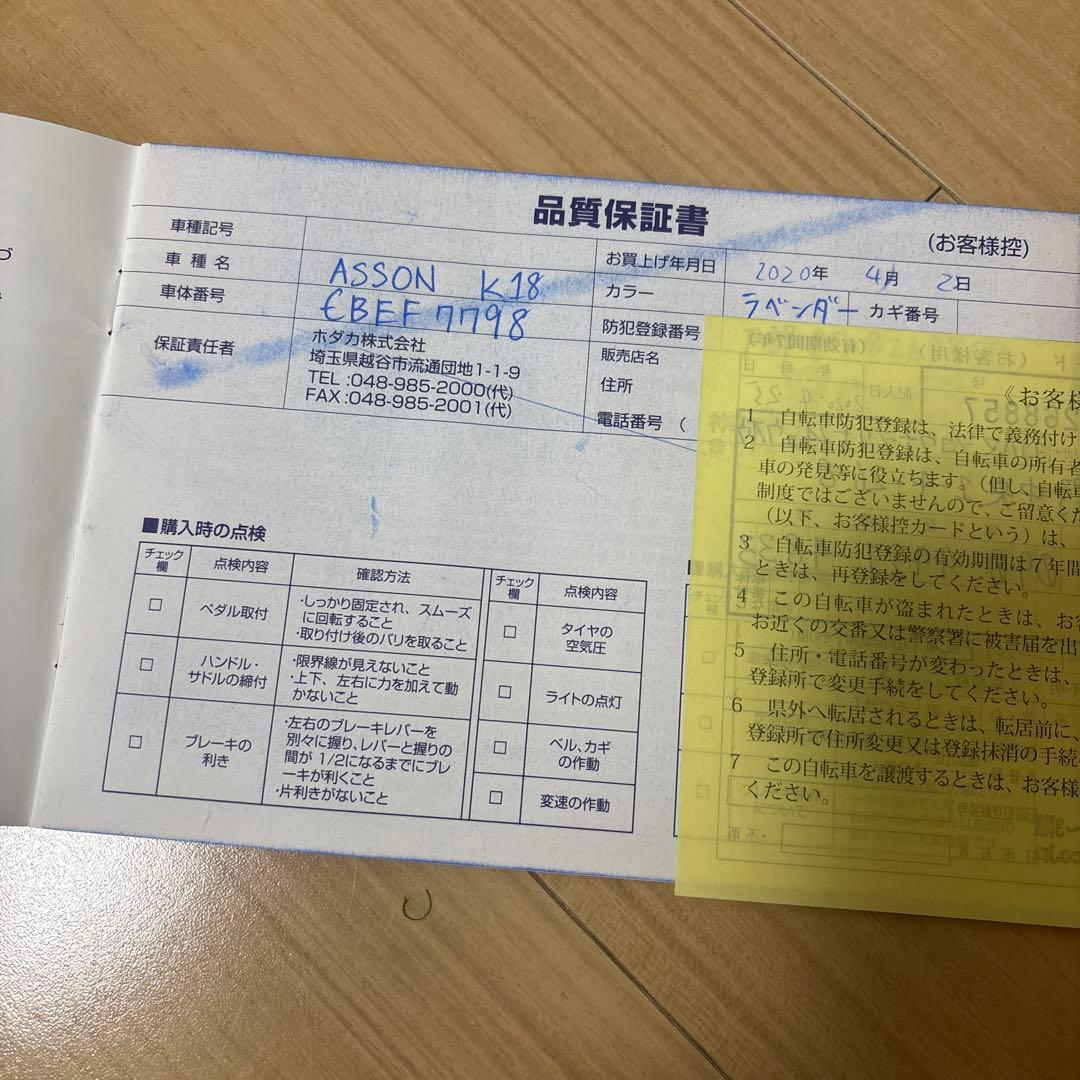 品質保証書
(お客様控)
車種記号
お買上げ年月日 2020年 4月 2日
車種名 ASSON K18
カラー ラベンダー カギ番号
車体番号 CBEF7798
防犯登録番号
保証責任者
ホダカ株式会社
埼玉県越谷市流通団地1-1-9
TEL :048-985-2000(代)
FAX :048-985-2001(代)
販売店名
住所
電話番号 (
■購入時の点検
チェック欄 点検内容 確認方法
□ ペダル取付
・しっかり固定され、スムーズ
に回転すること
・取り付け後のバリを取ること
□ ハンドル・
サドルの締付
・限界線が見えないこと
・上下、左右に力を加えて動
かないこと
□ ブレーキの
利き
・左右のブレーキレバーを
別々に握り、レバーと握りの
間が 1/2になるまでにブレ
ーキが利くこと
・片利きがないこと
チェック欄 点検内容
□ タイヤの
空気圧
□ ライトの点灯
□ ベル、カギ
の作動
□ 変速の作動
《お客様
1 自転車防犯登録は、法律で義務付け
2 自転車防犯登録は、自転車の所有者
車の発見等に役立ちます。(但し、自転車
制度ではございませんので、ご留意くだ
(以下、お客様控カードという)は、
3 自転車防犯登録の有効期間は7年間
ときは、再登録をしてください。
4 この自転車が盗まれたときは、お客
お近くの交番又は警察署に被害届を出
5 住所・電話番号が変わったときは、
登録所で変更手続をしてください。
6 県外へ転居されるときは、転居前に、
登録所で住所変更又は登録抹消の手続
7 この自転車を譲渡するときは、お客様
ください。